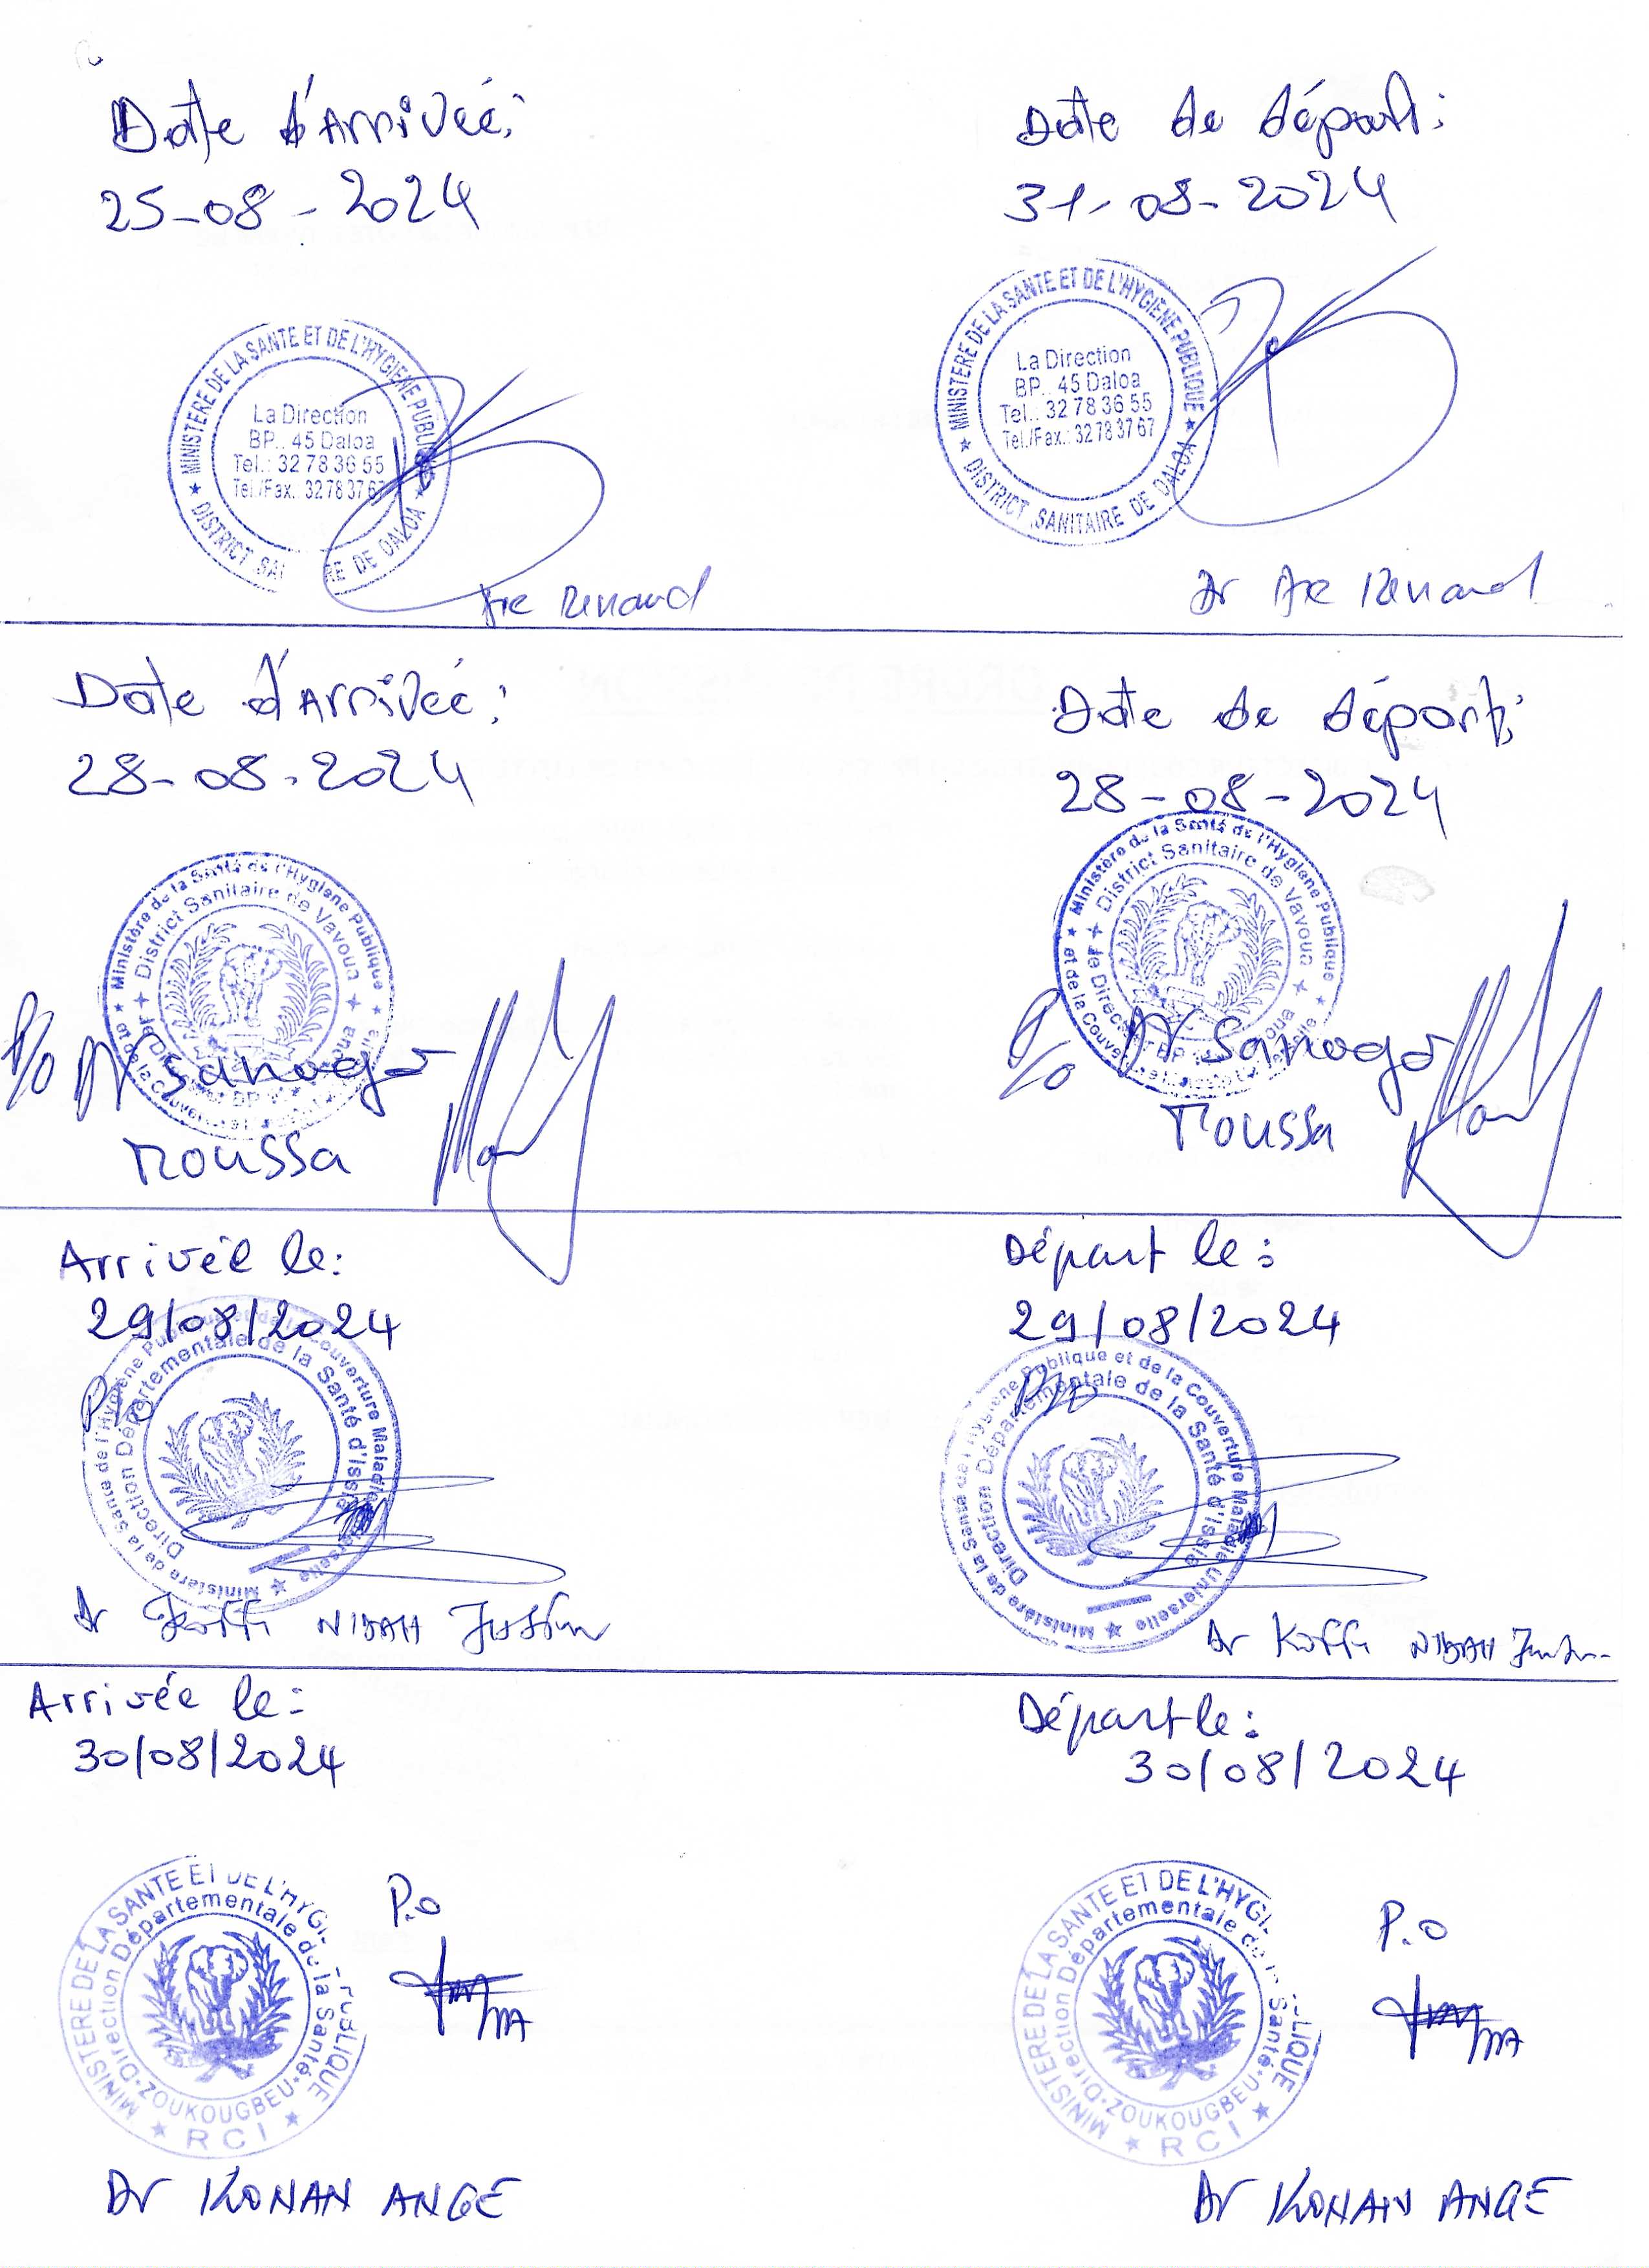 Date d'Arrivée:
25-08-2024
MINISTERE DE LA SANTE ET DE L'HYGIENE PUBLIQUE
La Direction
BP.. 45 Daloa
Tel.: 32 78 36 55
Tel./Fax.: 32 78 37 67
DISTRICT SAI RE DE DALOA
Renaud
Date de départ:
31-08-2024
MINISTERE DE LA SANTE ET DE L'HYGIENE PUBLIQUE
La Direction
BP.. 45 Daloa
Tel.: 32 78 36 55
Tel./Fax.: 32 78 37 67
DISTRICT SANITAIRE DE DALOA
Dr Renaud
Date d'Arrivée:
28-08-2024
Ministère de la Santé de l'Hygiène Publique
District Sanitaire de Vavoua
P/o Dr Sanogo
Moussa
Date de départ:
28-08-2024
Ministère de la Santé de l'Hygiène Publique
et de la Couver
District Sanitaire de Vavoua
P/o Dr Sanogo
Moussa
Arrivée le:
29/08/2024
Ministère de la Santé de l'Hygiène Publique et de la Couverture Maladie Universelle
Direction Départementale de la Santé d'Issia
P/o
Dr Koffi N'IDAH Justin
Départ le:
29/08/2024
Ministère de la Santé de l'Hygiène Publique et de la Couverture Maladie Universelle
Direction Départementale de la Santé d'Issia
Dr Koffi N'IDAH
Arrivée le:
30/08/2024
MINISTERE DE LA SANTE ET DE L'HYGI PUBLIQUE
Direction Départementale de la Santé
ZOUKOUGBEU
RCI
P.o
Dr KONAN ANGE
Départ le:
30/08/2024
MINISTERE DE LA SANTE ET DE L'HYGI LIQUE
Direction Départementale de Santé
ZOUKOUGBEU
RCI
P.o
Dr KONAN ANGE